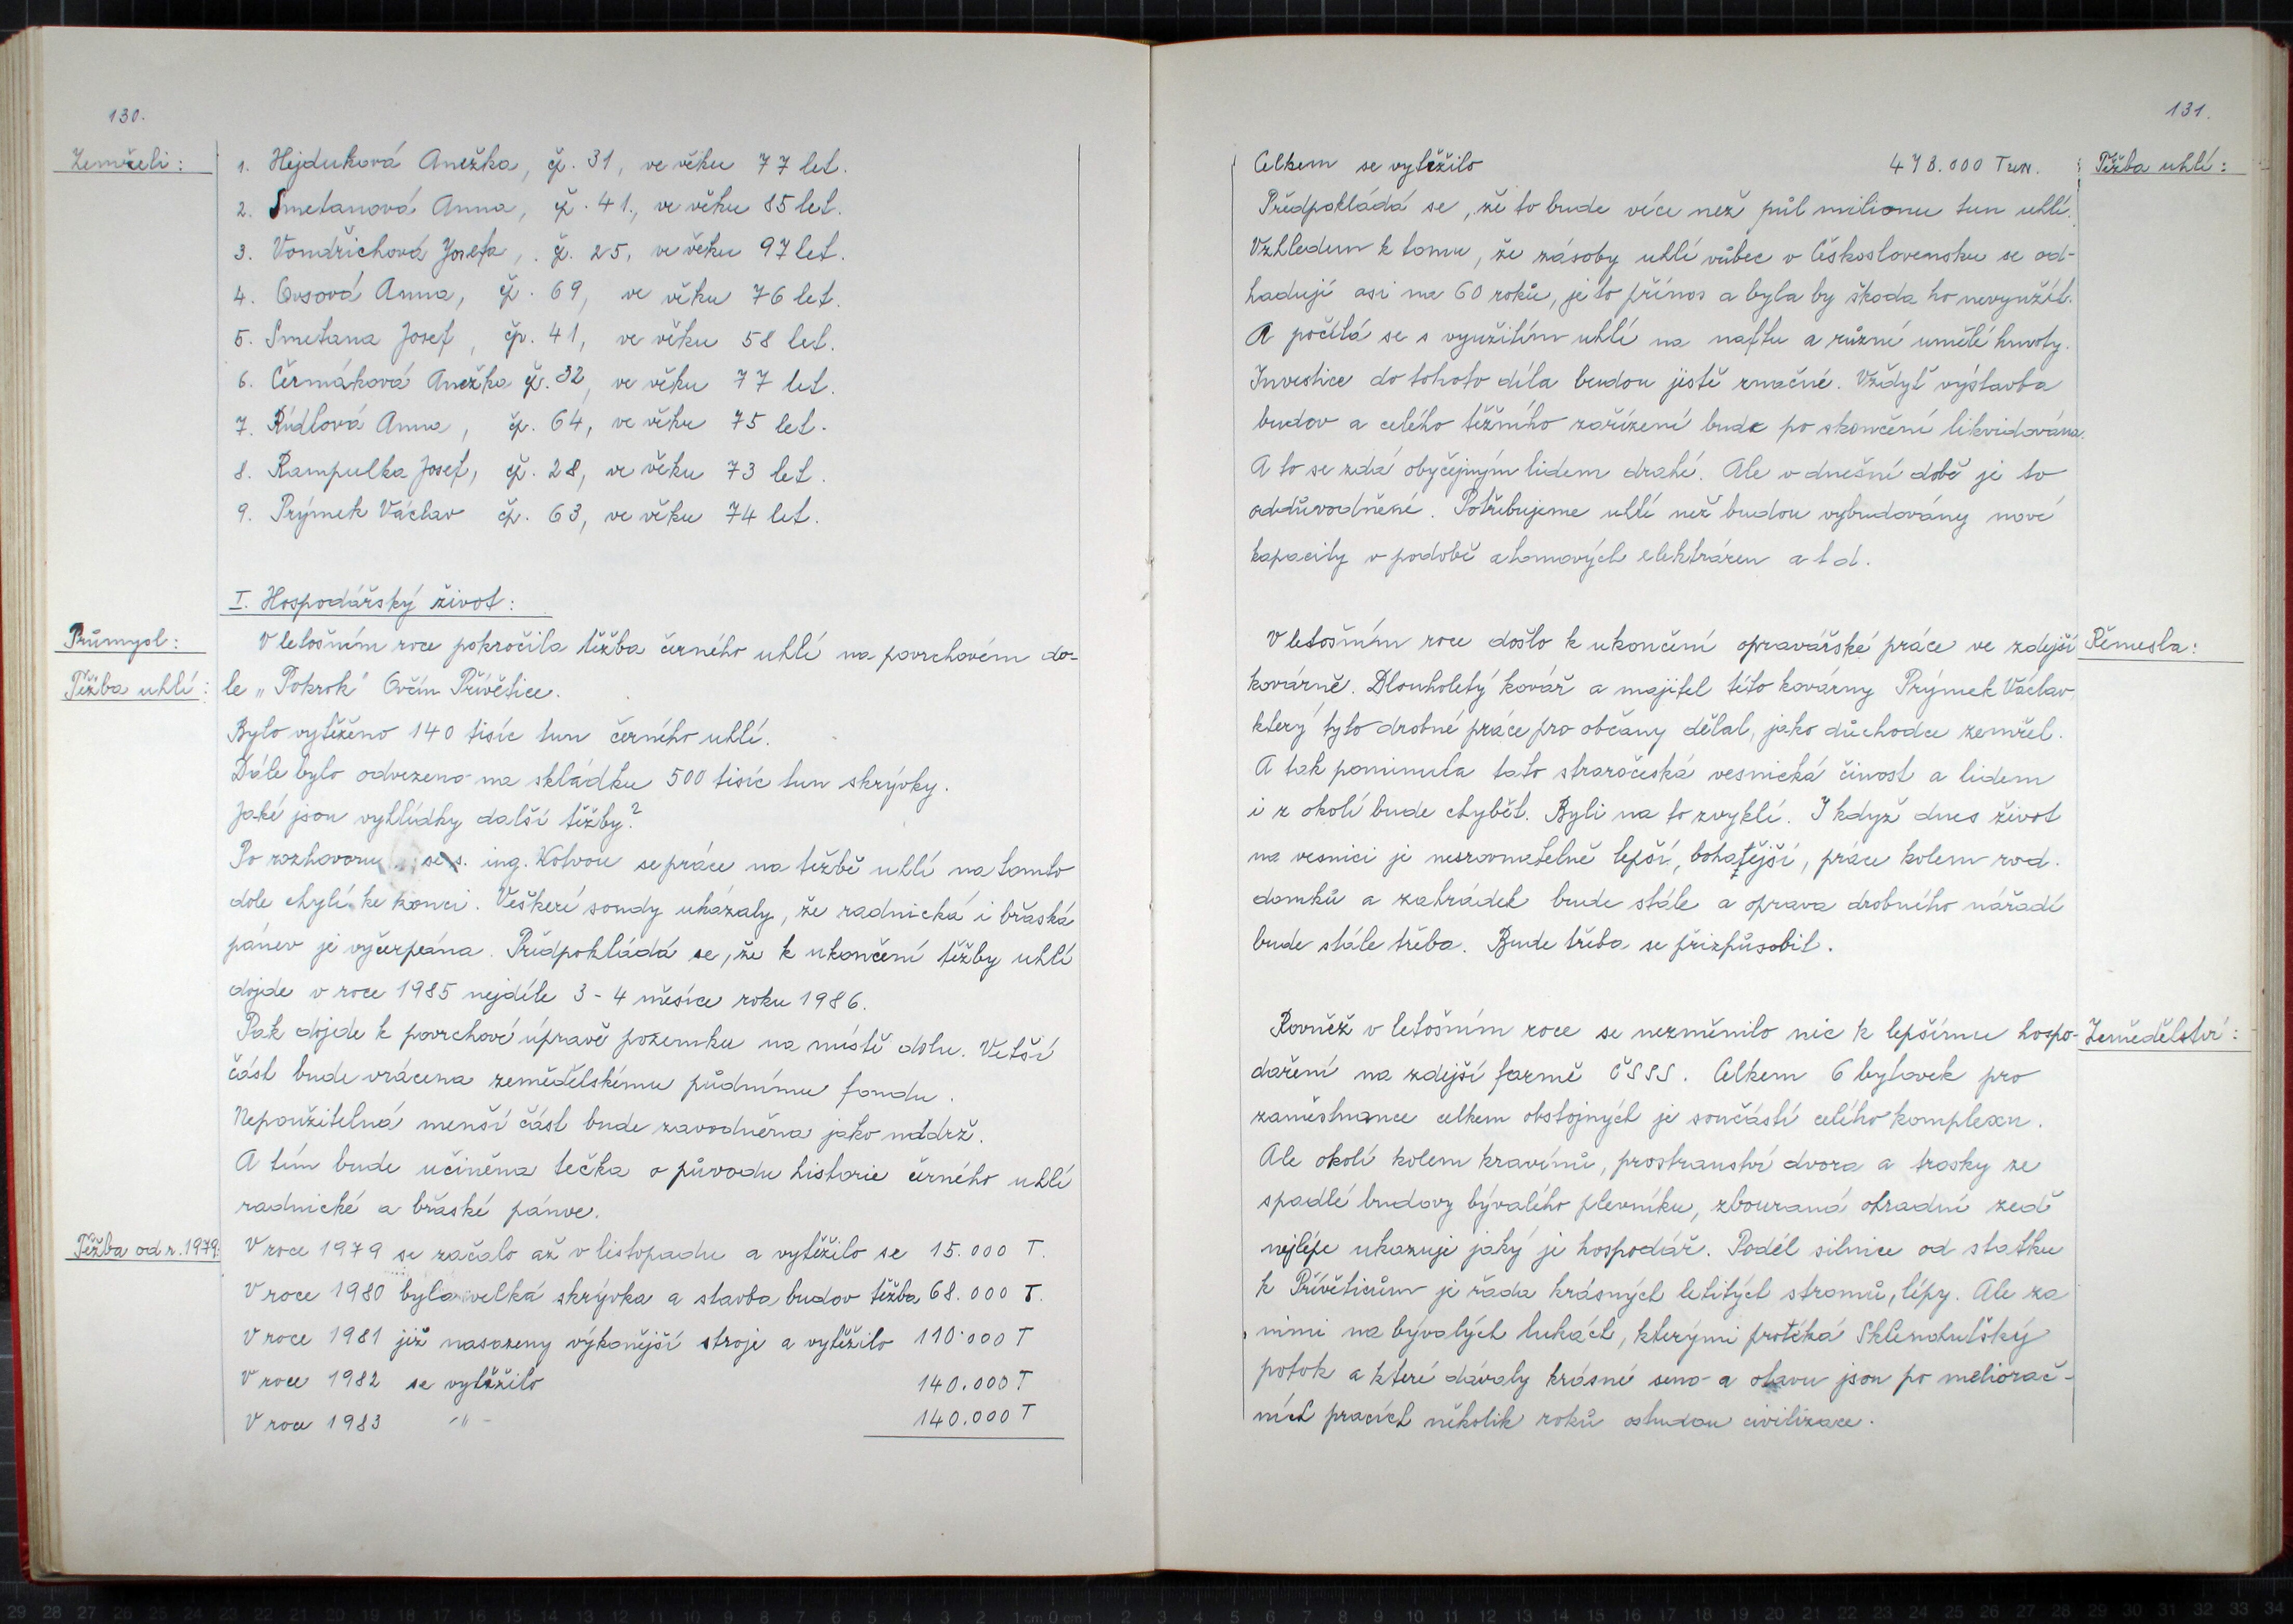 130.
Zemřeli:
1. Hejduková Anežka, čp. 31, ve věku 77 let.
2. Smetanová Anna, čp. 41., ve věku 85 let.
3. Vondřichová Josefa, čp. 25, ve věku 97 let.
4. Ovsová Anna, čp. 69, ve věku 76 let.
5. Smetana Josef, čp. 41, ve věku 58 let.
6. Čermáková Anežka čp. 32, ve věku 77 let.
7. Rídlová Anna, čp. 64, ve věku 75 let.
8. Rampulka Josef, čp. 28, ve věku 73 let.
9. Prýmek Václav čp. 63, ve věku 74 let.
I. Hospodářský život:
Průmysl:
V letošním roce pokročila těžba černého uhlí na povrchovém do-
Těžba uhlí:
le „Pokrok" Ovčín Přívětice.
Bylo vytěženo 140 tisíc tun černého uhlí.
Dále bylo odvezeno na skládku 500 tisíc tun skrývky.
Jaké jsou vyhlídky další těžby?
Po rozhovoru se s. ing. Kotvou se práce na težbě uhlí na tomto
dole chylí ke konci. Veškeré sondy ukázaly, že radnická i břaská
pánev je vyčerpána. Předpokládá se, že k ukončení těžby uhlí
dojde v roce 1985 nejdéle 3 - 4 měsíce roku 1986.
Pak dojde k povrchové úpravě pozemku na místě dolu. Vetší
část bude vrácena zemědělskému půdnímu fondu.
Nepoužitelná menší část bude zavodněna jako nádrž.
A tím bude učiněna tečka o původu historie černého uhlí
radnické a břaské pánve.
Těžba od r. 1979.
V roce 1979 se začalo až v listopadu a vytěžilo se 15.000 T.
V roce 1980 byla velká skrývka a stavba budov těžba 68.000 T.
V roce 1981 již nasazeny výkonější stroje a vytěžilo 110.000 T
V roce 1982 se vytěžilo 140.000 T
V roce 1983 -"- 140.000 T
131.
Celkem se vytěžilo 473.000 Tun.
Těžba uhlí:
Předpokládá se, že to bude více než půl milionu tun uhlí.
Vzhledem k tomu, že zásoby uhlí vůbec v Československu se od-
hadují asi na 60 roků, je to přínos a byla by škoda ho nevyužít.
A počítá se s využitím uhlí na naftu a různé umělé hmoty.
Investice do tohoto díla budou jistě značné. Vždyť výstavba
budov a celého těžního zařízení bude po skončení likvidována.
A to se zdá obyčejným lidem drahé. Ale v dnešní době je to
oddůvodněné. Potřebujeme uhlí než budou vybudovány nové
kapacity v podobě atomových elektráren a t d.
V letošním roce došlo k ukončení opravářské práce ve zdejší
Řemesla:
kovárně. Dlouholetý kovář a majitel této kovárny Prýmek Václav,
který tyto drobné práce pro občany dělal, jako důchodce zemřel.
A tak pominula tato staročeská vesnická činost a lidem
i z okolí bude chybět. Byli na to zvyklí. I když dnes život
na vesnici je nesrovnatelně lepší, bohatější, práce kolem rod.
domků a zahrádek bude stále a oprava drobného nářadí
bude stále třeba. Bude třeba se přizpůsobit.
Rovněž v letošním roce se nezměnilo nic k lepšímu hospo-
Zemědělství:
daření na zdejší farmě ČSSS. Celkem 6 bytovek pro
zaměstnance celkem obstojných je součástí celého komplexu.
Ale okolí kolem kravínů, prostranství dvora a trosky ze
spadlé budovy bývalého plevníku, zbouraná ohradní zeď
nejlépe ukazuje jaký je hospodář. Podél silnice od statku
k Přívěticům je řada krásných letitých stromů, lípy. Ale za
nimi na bývalých lukách, kterými protéká Sklenohuťský
potok a které dávaly krásné seno a otavu jsou po meliorač-
ních pracích několik roků ostudou civilizace.